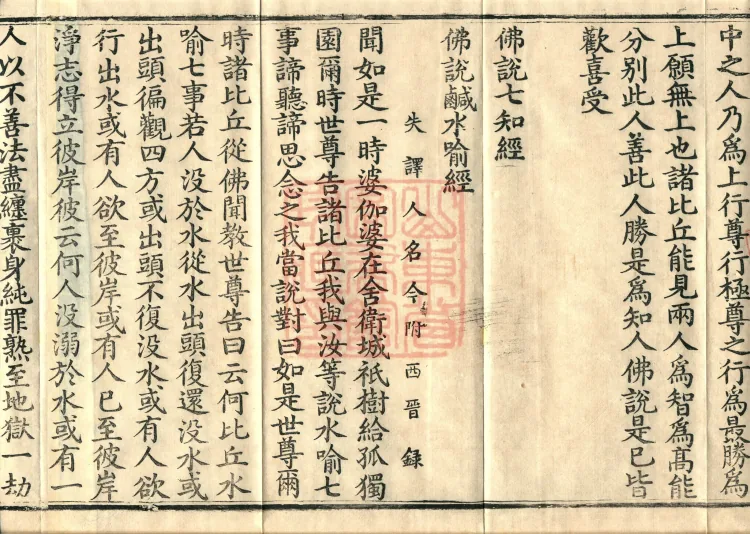 中之人乃爲上行尊行極尊之行爲最勝爲
上願無上也諸比丘能見兩人爲智爲高能
分别此人善此人勝是爲知人佛說是已皆
歡喜受
佛說七知經
佛說鹹水喻經
失譯人名今附西晉録
聞如是一時婆伽婆在舍衛城祇樹給孤獨
園爾時世尊告諸比丘我與汝等說水喻七
事諦聽諦思念之我當說對曰如是世尊爾
時諸比丘從佛聞教世尊告曰云何比丘水
喻七事若人没於水從水出頭復還没水或
出頭徧觀四方或出頭不復没水或有人欲
行出水或有人欲至彼岸或有人已至彼岸
淨志得立彼岸彼云何人没溺於水或有一
人以不善法盡纏裹身純罪熟至地獄一劫